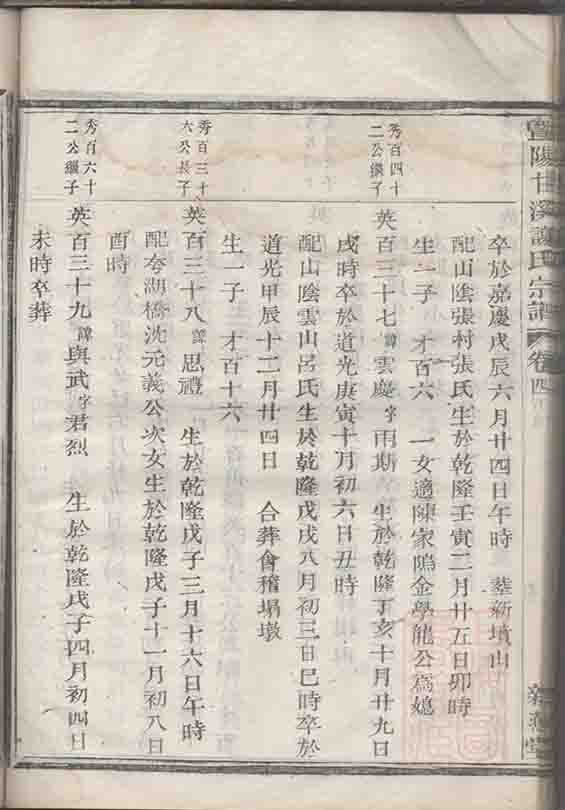 暨陽甘溪 氏宗譜 卷四
卒於嘉慶戊辰六月廿四日午時 葬新墳山
配山陰張村張氏生於乾隆壬寅二月廿五日卯時
生一子 才百六 一女適陳家塢金學龍公為媳
秀百四十二公繼子
英百三十七諱雲慶字雨斯 生於乾隆丁亥十月廿九日
戌時卒於道光庚寅十月初六日丑時
配山陰雲山呂氏生於乾隆戊戌八月初三日巳時卒於
道光甲辰十二月廿四日 合葬會稽塌墩
生一子 才百十六
秀百三十六公長子
英百三十八諱思禮 生於乾隆戊子三月十六日午時
配夸湖橋沈元義公次女生於乾隆戊子十一月初八日
酉時
秀百六十二公繼子
英百三十九諱與武字君烈 生於乾隆戊子四月初四日
未時卒葬